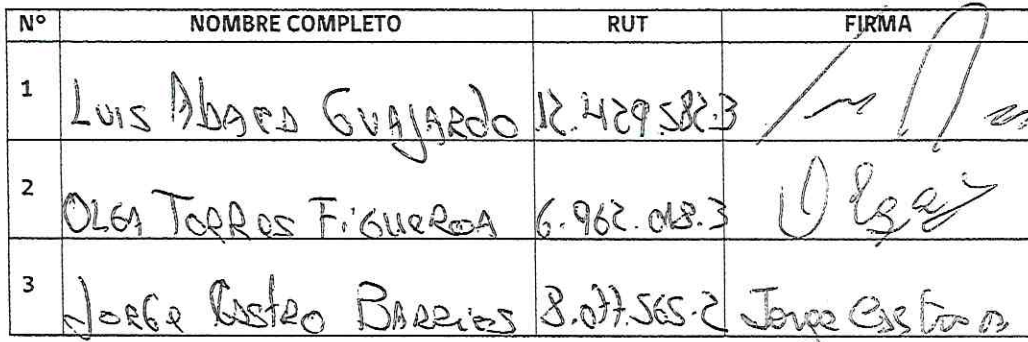 N° NOMBRE COMPLETO RUT FIRMA
1 Luis Abaca Guajardo 12.429.582.3
2 OLGA TORRES FIGUEROA 6.962.018.3 Olga
3 Jorge Castro Barrios 8.077.565-2 Jorge Castro B